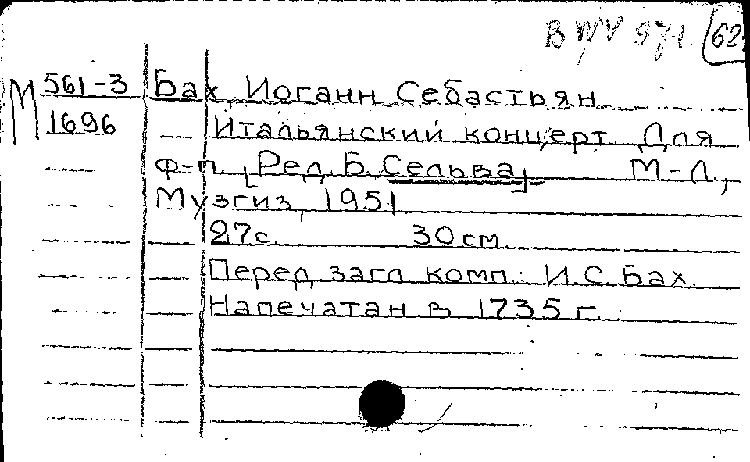 BWV 971 62
М 561-3 Бах, Иоганн Себастьян
1696 Итальянский концерт. Для
ф-п. [Ред. Б. Сельва] М-Л.,
Музгиз, 1951
27с. 30см.
Перед загл. комп.: И.С. Бах.
Напечатан в 1735 г.